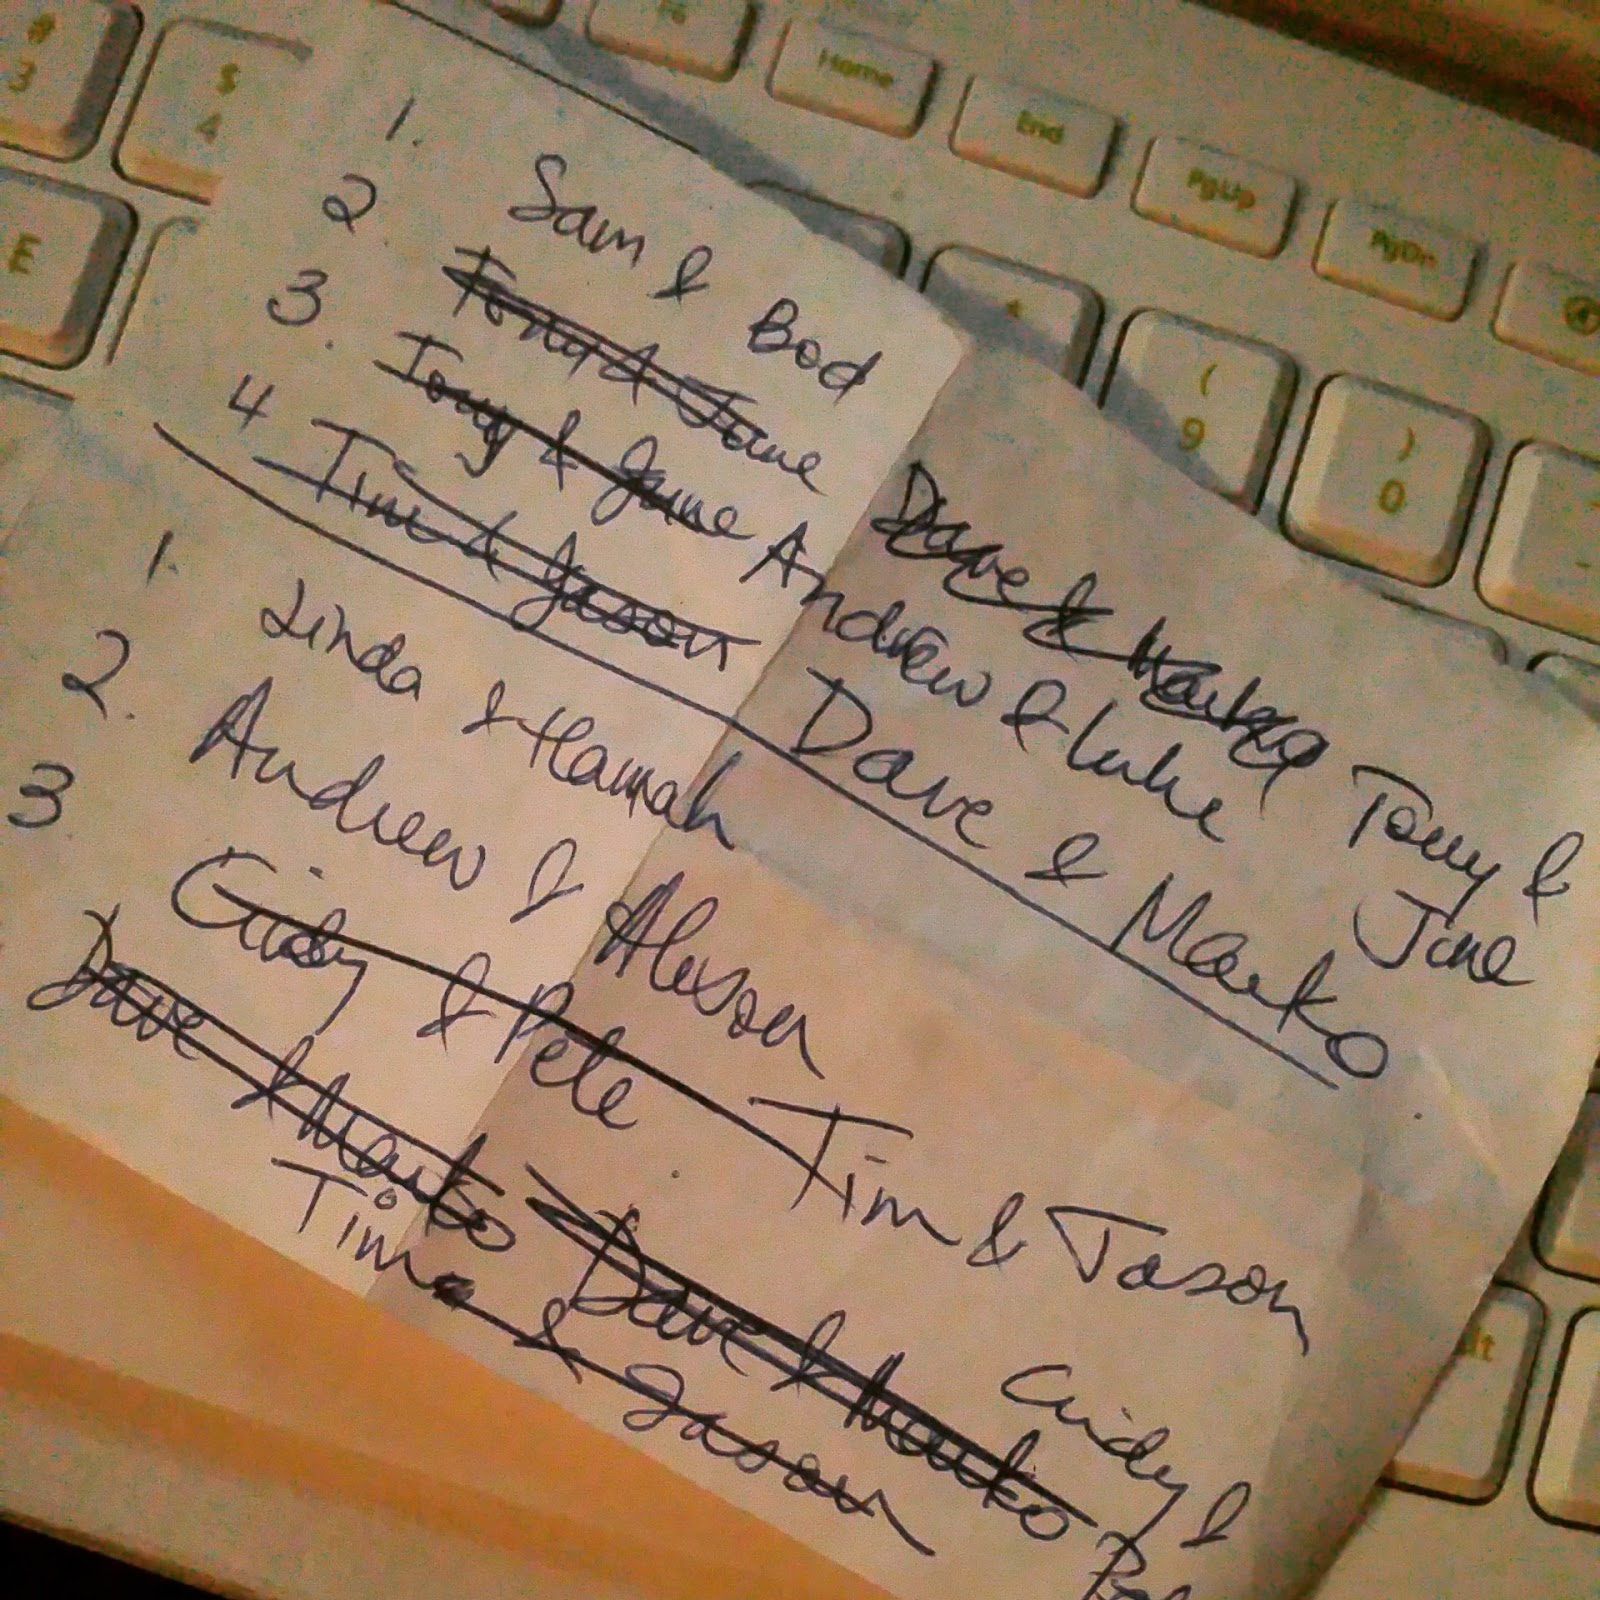 1. Sam & Bod
2. Tony & Jane Dave & Marko Tony & Jane
3. Tony & Jane Andrew & Luke
4 Tim & Jason Dave & Marko
1. Linda & Hannah
2. Andrew & Alison
3 Cindy & Pete Tim & Jason
Dave & Marko Dave & Marko Cindy &
Tim & Jason
# 3
$ 4
E
Home
End
PgUp
PgDn
( 9
) 0